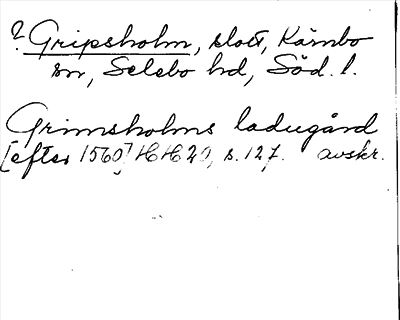 ? Gripsholm, slott, Kärnbo
sn, Selebo hd, Söd. l.
Grimsholms ladugård
[efter 1560] HH 20, s. 127. avskr.